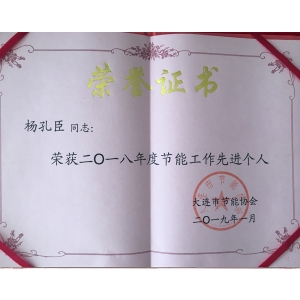 荣誉证书
杨孔臣 同志:
荣获二〇一八年度节能工作先进个人
大连市节能协会
二〇一九年一月